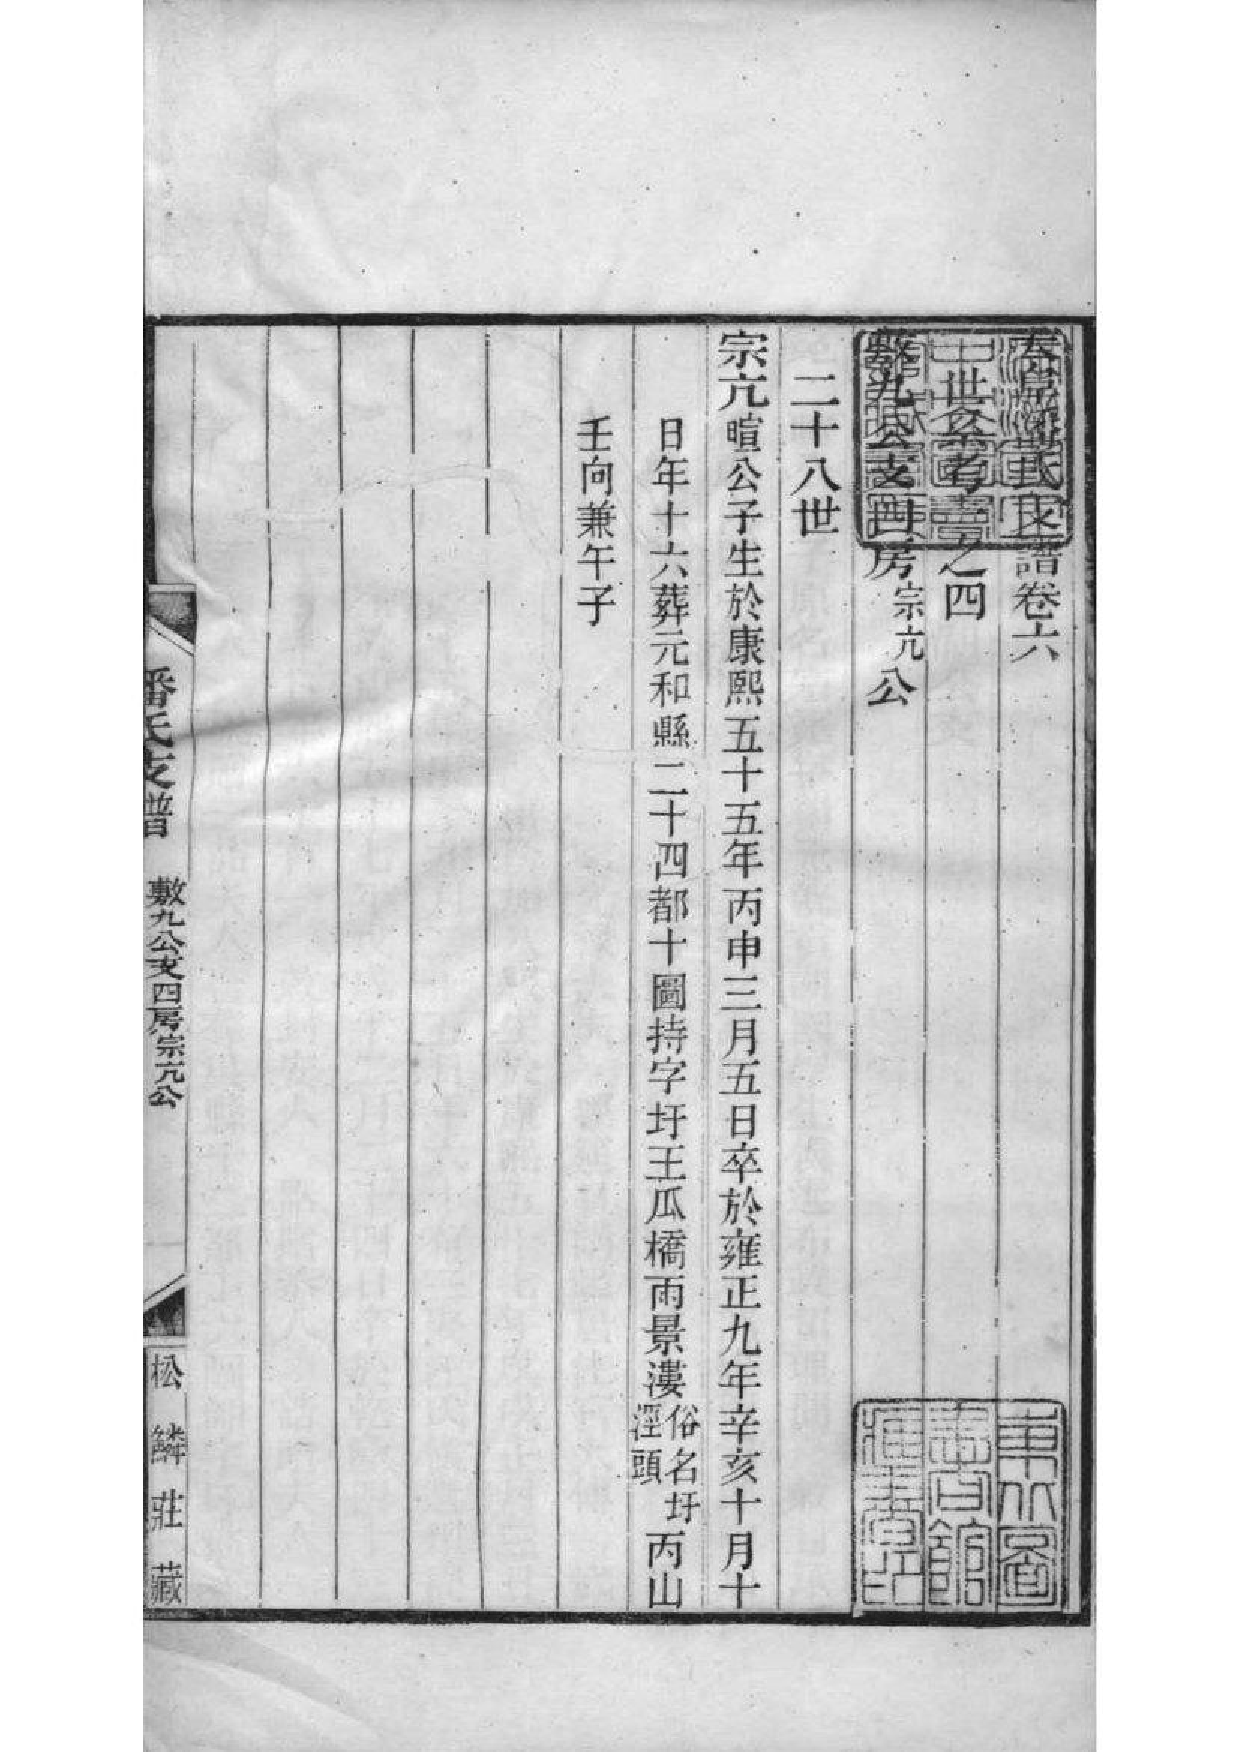 大阜潘氏支譜卷六
世系考一之四
敷九公支四房宗亢公
二十八世
宗亢暄公子生於康熙五十五年丙申三月五日卒於雍正九年辛亥十月十
日年十六葬元和縣二十四都十圖持字圩王瓜橋雨景漊俗名圩涇頭丙山
壬向兼午子
潘氏支譜
敷九公支四房宗亢公
一
松鱗莊藏